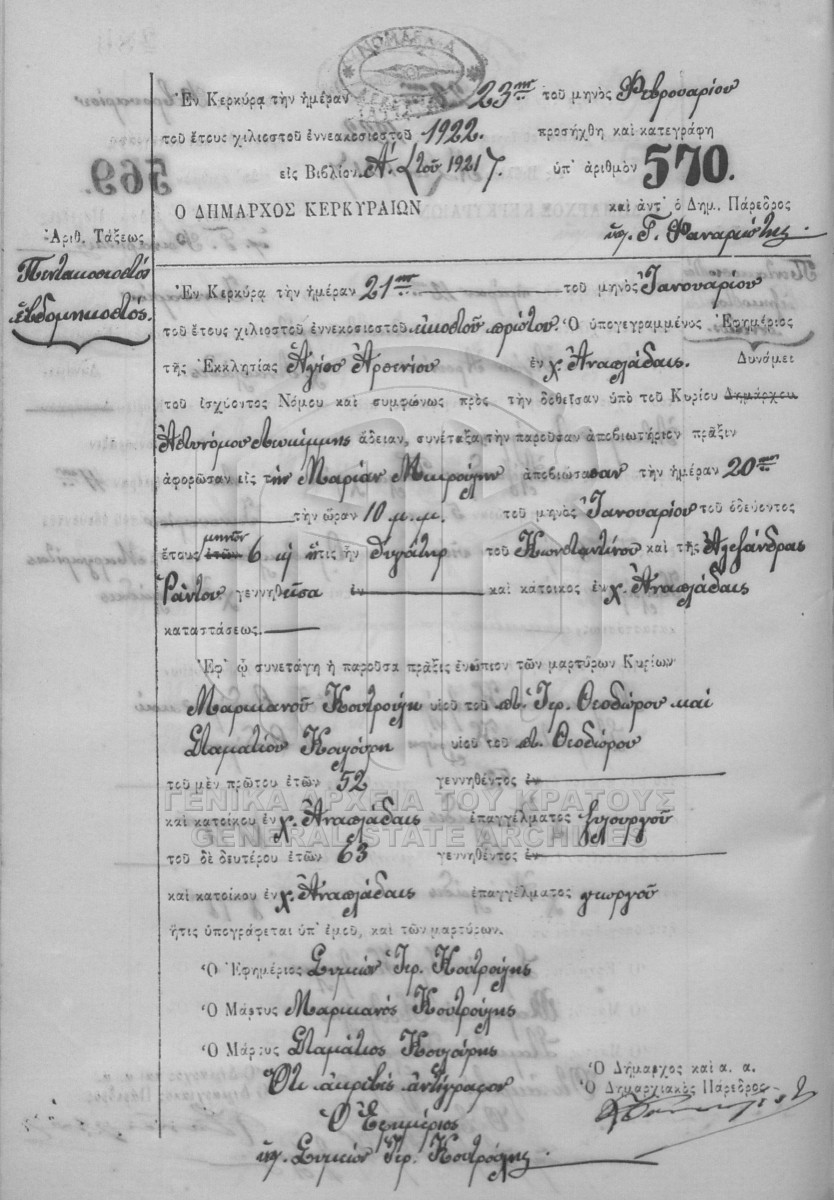 Ἐν Κερκύρᾳ τὴν ἡμέραν 23ην τοῦ μηνὸς Φεβρουαρίου
τοῦ ἔτους χιλιοστοῦ ἐννεακοσιοστοῦ 1922. προσήχθη καὶ κατεγράφη
εἰς Βιβλίον Α΄ (τοῦ 1921) ὑπ᾽ ἀριθμὸν 570.
Ο ΔΗΜΑΡΧΟΣ ΚΕΡΚΥΡΑΙΩΝ καὶ ἀντ᾽ ὁ Δημ. Πάρεδρος
569.
Ἀριθ. Τάξεως
Πεντακοσιοστὸς
ἑβδομηκοστός.
Ἐν Κερκύρᾳ τὴν ἡμέραν 21ην τοῦ μηνὸς Ἰανουαρίου
τοῦ ἔτους χιλιοστοῦ ἐννεκοσιοστοῦ εἰκοστοῦ πρώτου. Ὁ ὑπογεγραμμένος Ἐφημέριος
τῆς Ἐκκλησίας Ἁγίου Ἀρσενίου ἐν χ. Ἀναπλάδαις. Δυνάμει
τοῦ ἰσχύοντος Νόμου καὶ συμφώνως πρὸς τὴν δοθεῖσαν ὑπὸ τοῦ Κυρίου Δημάρχου
Ἀστυνόμου Λευκίμμης ἄδειαν, συνέταξα τὴν παροῦσαν ἀποβιωτήριον πρᾶξιν
ἀφορῶσαν εἰς τὴν Μαρίαν ἀποβιώσασαν τὴν ἡμέραν 20ην
τὴν ὥραν 10 μ.μ. τοῦ μηνὸς Ἰανουαρίου τοῦ ὁδεύοντος
μηνῶν
ἔτους ἐτῶν 6 ἥτις ἦν θυγάτηρ τοῦ Κωνσταντίνου καὶ τῆς Ἀλεξάνδρας
γεννηθεῖσα ἐν καὶ κάτοικος ἐν χ. Ἀναπλάδαις
καταστάσεως.
Ἐφ᾽ ᾧ συνετάγη ἡ παροῦσα πρᾶξις ἐνώπιον τῶν μαρτύρων Κυρίων
Μαρκιανοῦ Κουτρούλη υἱοῦ τοῦ π. Ἱερ. Θεοδώρου καὶ
Σταματίου υἱοῦ τοῦ π. Θεοδώρου
τοῦ μὲν πρώτου ἐτῶν 52 γεννηθέντος ἐν
ΓΕΝΙΚΑ ΑΡΧΕΙΑ ΤΟΥ ΚΡΑΤΟΥΣ
καὶ κατοίκου ἐν χ. Ἀναπλάδαις ἐπαγγέλματος ξυλουργοῦ
GENERAL STATE ARCHIVES
τοῦ δὲ δευτέρου ἐτῶν 63 γεννηθέντος ἐν
καὶ κατοίκου ἐν χ. Ἀναπλάδαις ἐπαγγέλματος γεωργοῦ
ἥτις ὑπογράφεται ὑπ᾽ ἐμοῦ, καὶ τῶν μαρτύρων.
Ὁ Ἐφημέριος Συμεὼν Ἱερ. Κουτρούλης
Ὁ Μάρτυς Μαρκιανὸς Κουτρούλης
Ὁ Μάρτυς Σταμάτιος
Ὁ Δήμαρχος καὶ ἀ. ἀ.
Ὅτι ἀκριβὲς ἀντίγραφον
Ὁ Δημαρχιακὸς Πάρεδρος
Ὁ Ἐφημέριος
Συμεὼν Ἱερ. Κουτρούλης